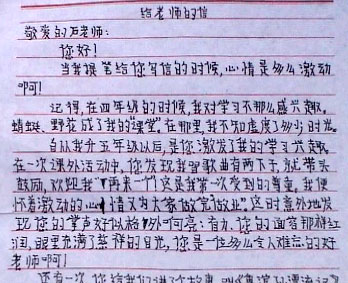 给老师的信
敬爱的石老师:
您好!
当我提笔给您写信的时候,心情是多么激动
啊!
记得,在四年级的时候,我对学习不那么感兴趣。
蜻蜓、野花成了我的“课堂”。在那里,我不知虚度了多少时光。
自从我升五年级以后,是您激发了我的学习兴趣。
在一次课外活动中,您发现我唱歌曲有两下子,就带头
鼓励,欢迎我“再来一个”这是我第一次受到的尊重,我便
怀着激动的心情又为大家做完做业”这时意外地发
现您的掌声好似格外响亮:有力.您的面容那样红
润,眼里充满了慈祥的目光,您是一位多么令人难忘的好
老师啊!
还有一次,您给我们讲了个故事,叫《鲁滨孙漂流记》